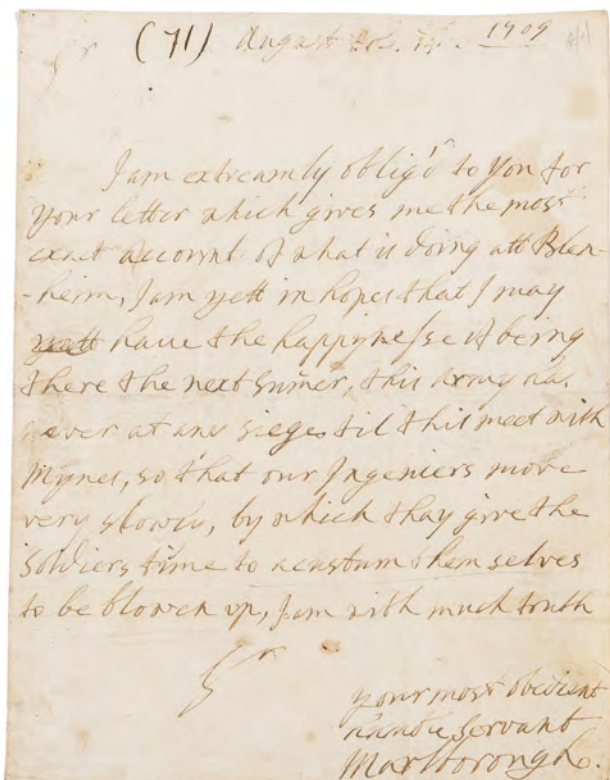 Sr (71) August 1709
I am extreamly oblig'd to you for
your letter which gives me the most
exact account of what is doing att Blen-
-heim, I am yett in hopes that I may
yett haue the happynesse of being
there the next Sumer, this army has
never at anie sieges til this meet with
Mynes, so that our Ingeniers move
very slowly, by which thay give the
soldiers time to acustum them selves
to be blowen up, I am with much truth
Sr
your most obedient
humble servant
Marlborough.